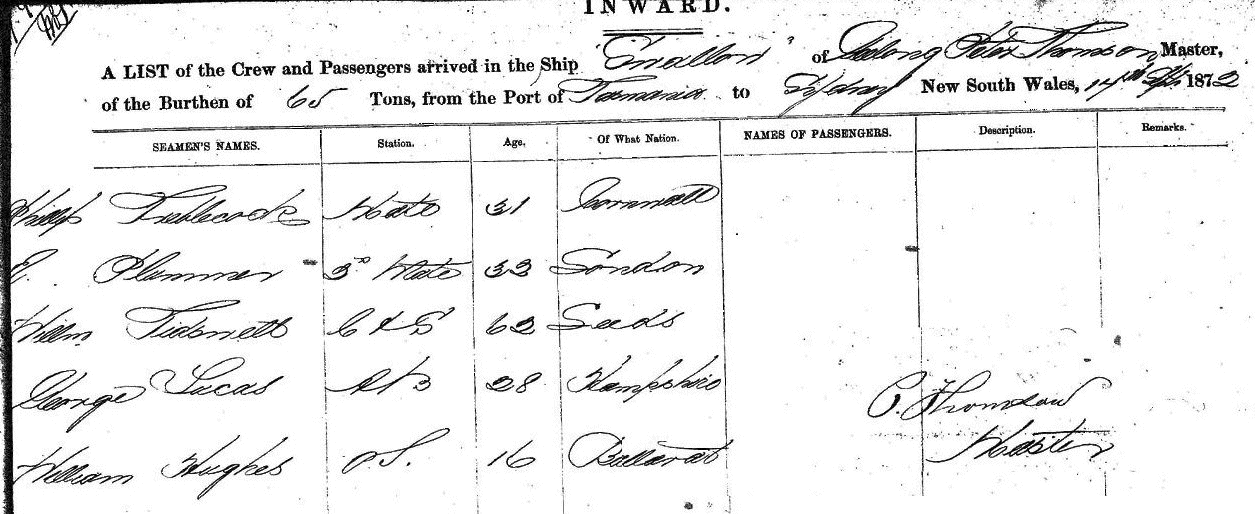 INWARD.
A LIST of the Crew and Passengers arrived in the Ship of Geelong Peter Thomson Master,
of the Burthen of 65 Tons, from the Port of Tasmania to Sydney New South Wales, 14th 1872
SEAMEN'S NAMES. Station. Age. Of What Nation. NAMES OF PASSENGERS. Description. Remarks.
Phillip Mate 31 Cornwall
E. Plummer Mate 33 London
Willm 62 Leeds
George Lucas AB 28 Hampshire
C. Thomson
William Hughes OS. 16 Ballarat
Master